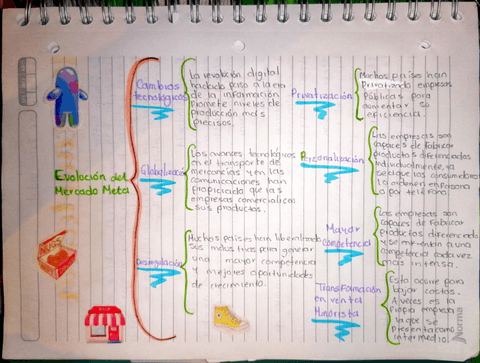 Evaloción del
Mercado Meta
Cambios
tecnológicos
La revolución digital
ha dado paso a la era
de la información
Promete niveles de
producción mas
precisos.
Globalización
Los avances tecnológicos
en el transporte de
mercancias y en las
comunicaciones han
Propiciado que las
empresas comercialicen
sus productos.
Desregulación
Muchos países han liberalizado
sus industrias para generar
una mayor competencia
y mejores oportunidades
de crecimiento.
Privatización
Muchos países han
Privatizado empresas
Públicas para
aumentar su
eficiencia.
Personalización
Las empresas son
capaces de fabricar
productos diferenciados
individualmente, ya
sea que los consumidores
lo ordenen en Persona
o por teléfono.
Mayor
Competencia
Las empresas son
capaces de Fabricar
productos diferenciado
y se enfrentan a una
competencia cada vez
mas intensa.
Transformación
en venta
Minorista
Esto ocurre para
bajar costos.
A veces es la
Propia empresa
la que se
presenta como
intermedio
Norma